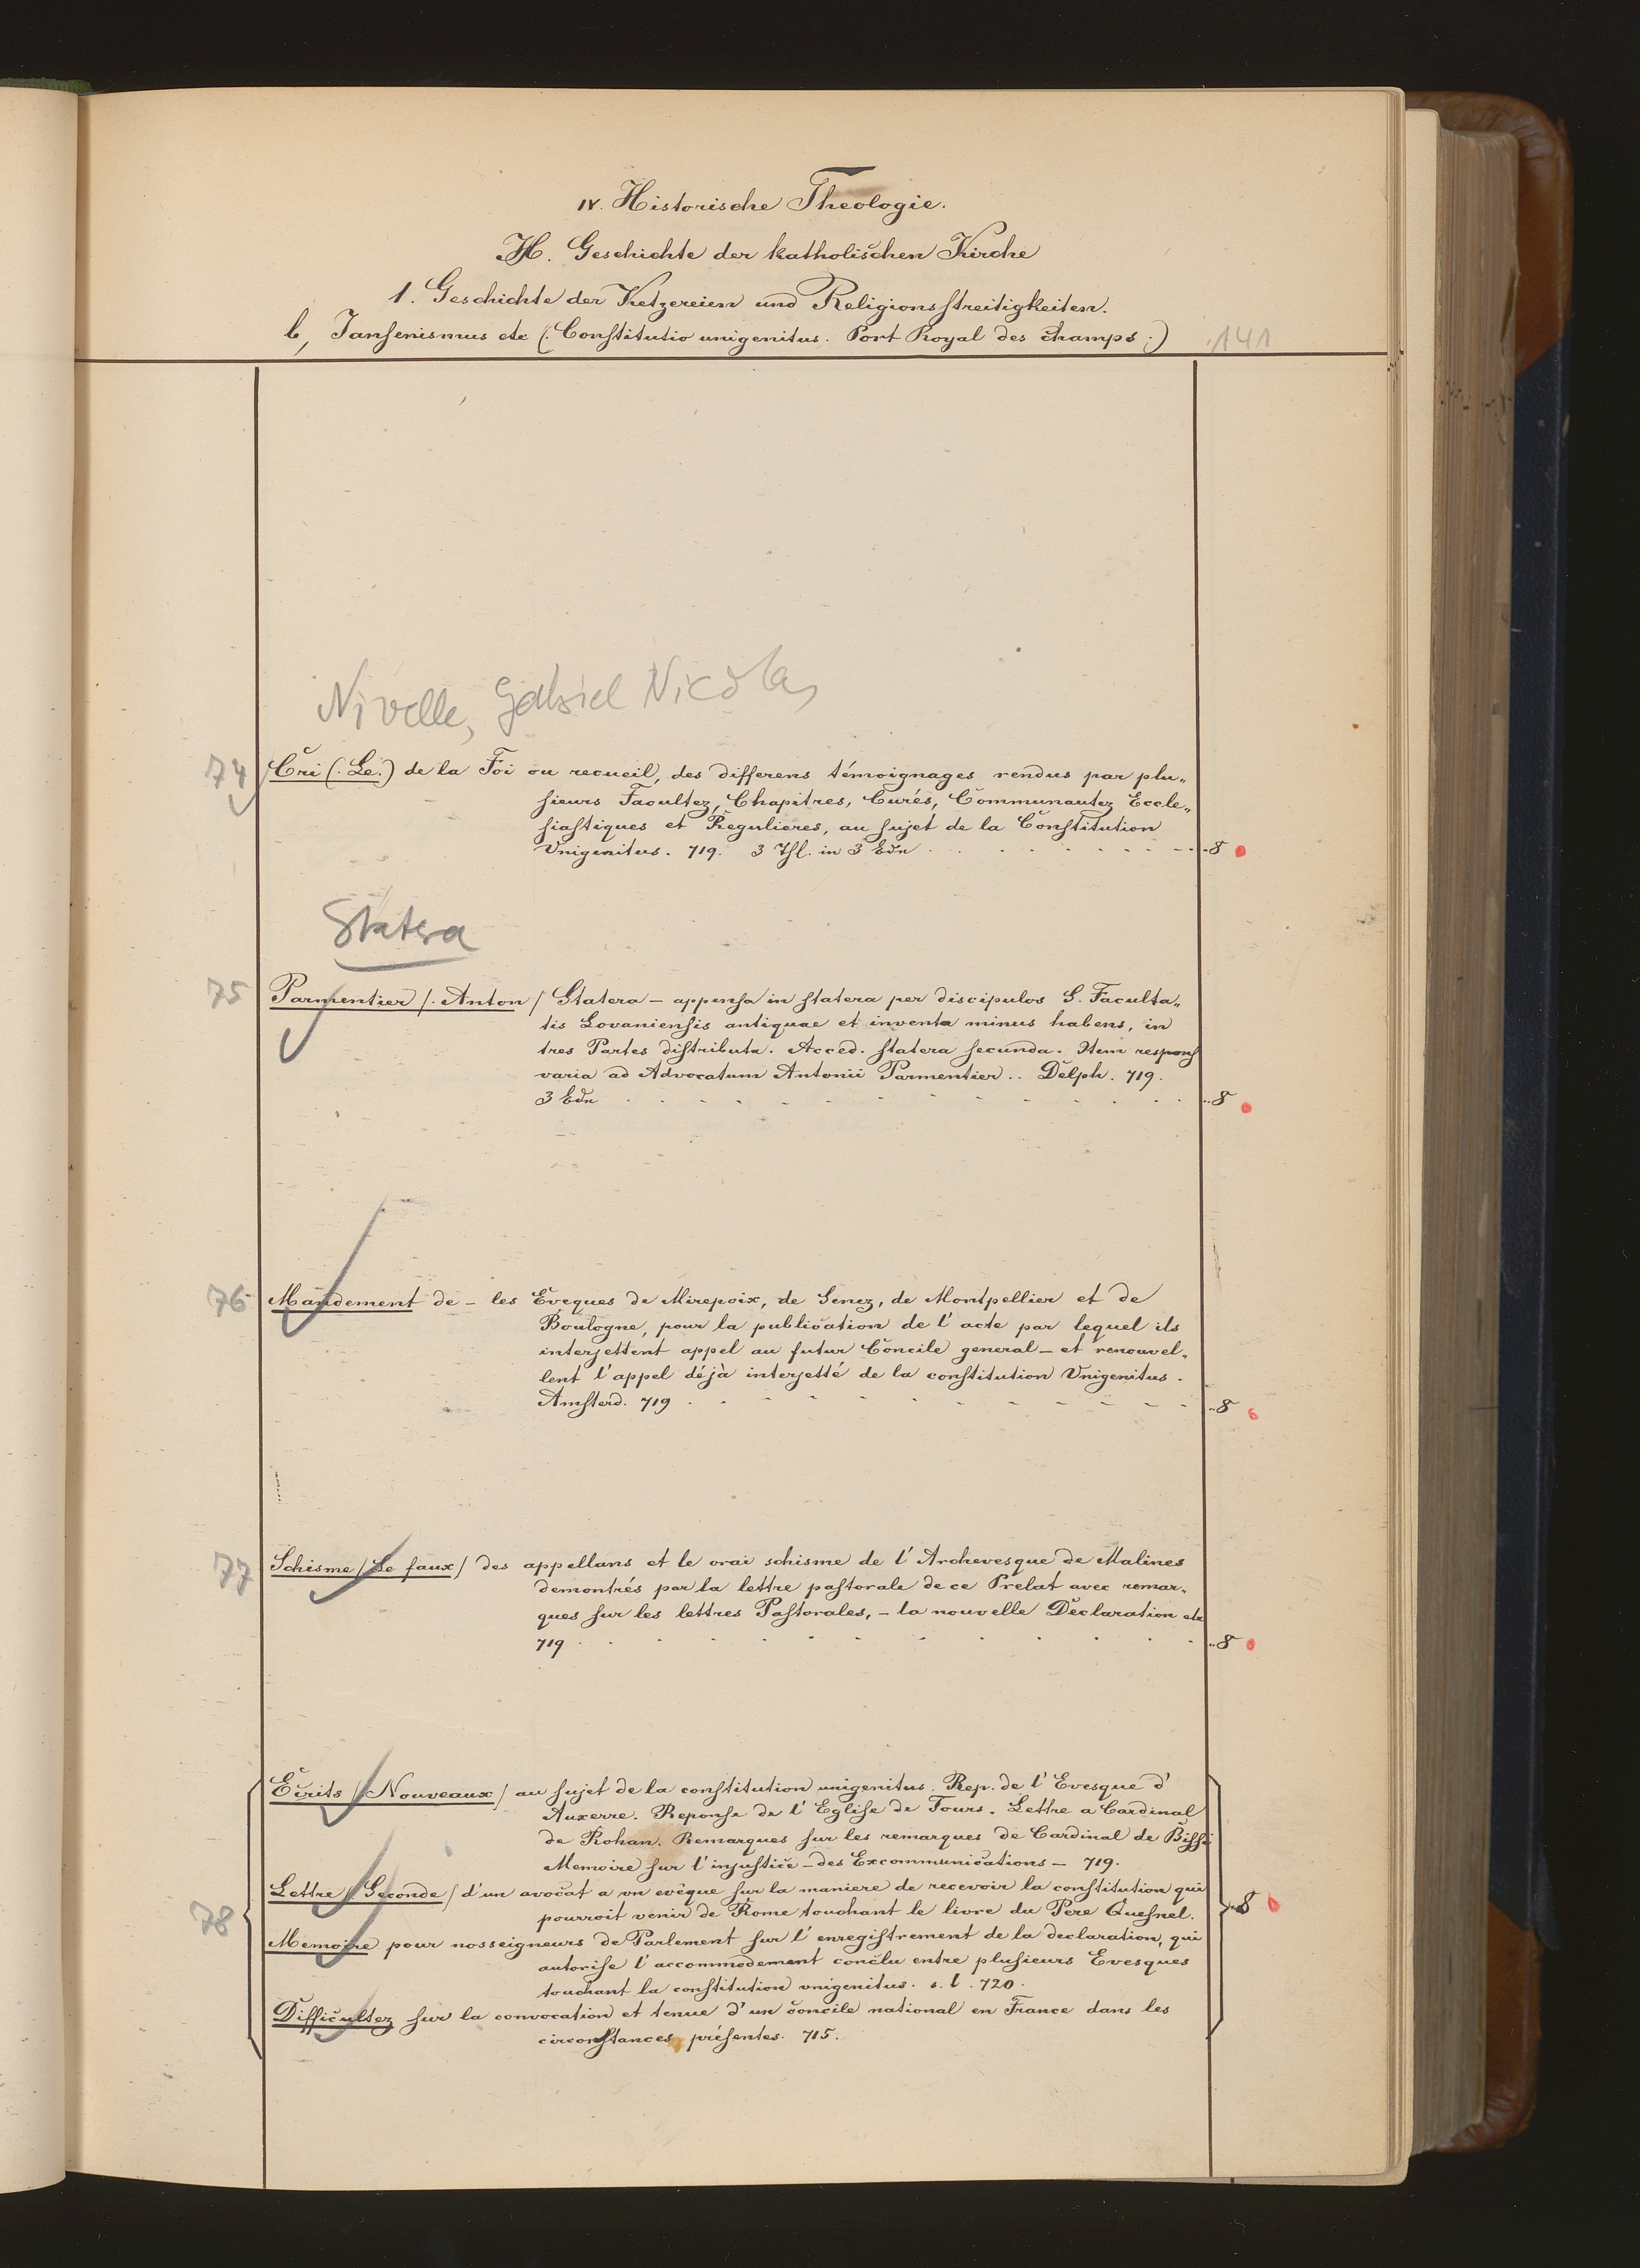 IV. Historische Theologie.
H. Geschichte der katholischen Kirche
1. Geschichte der Ketzereien und Religionsstreitigkeiten.
b, Jansenismus etc (: Constitutio unigenitus. Port Royal des champs :) 141
Nivelle, Gabriel Nicolas
74 Cri (: Le :) de la Foi ou recueil, des differens témoignages rendus par plu„
sieurs Facultez, Chapitres, Curés, Communautez Eccle„
siastiques et Regulieres, au sujet de la Constitution
Vnigenitus. 719. 3 Thl. in 3 Bdn . . . . . . . . 8
Statera
75 Parmentier /: Anton / Statera – appensa in statera per discipulos S. Faculta„
tis Lovaniensis antiquae et inventa minus habens, in
tres Partes distributa. Acced. statera secunda. Item respons
varia ad Advocatum Antonii Parmentier .. Delph. 719.
3 Bdn . . . . . . . . . . . . . . 8
76 Mandement de – les Eveques de Mirepoix, de Senez, de Montpellier et de
Boulogne, pour la publication de l' acte par lequel ils
interjettent appel au futur Concile general – et renouvel„
lent l' appel déjà interjetté de la constitution Vnigenitus.
Amsterd. 719 . . . . . . . . . . . . 8
77 Schisme / Le faux / des appellans et le vrai schisme de l' Archevesque de Malines
demontrés par la lettre pastorale de ce Prelat avec remar„
ques sur les lettres Pastorales, – la nouvelle Declaration etc
719 . . . . . . . . . . . . . 8
Ecrits / Nouveaux / au sujet de la constitution unigenitus. Rep. de l' Evesque d'
Auxerre. Reponse de l' Eglise de Tours. Lettre a Cardinal
de Rohan. Remarques sur les remarques de Cardinal de Bissi
Memoire sur l' injustice – des Excommunications – 719.
Lettre / Seconde / d'un avocat a vn evêque sur la maniere de recevoir la constitution qui
78 pourroit venir de Rome touchant le livre du Pere Quesnel. 8
Memoire pour nosseigneurs de Parlement sur l' enregistrement de la declaration, qui
autorise l' accommodement conclu entre plusieurs Evesques
touchant la constitution vnigenitus. s. l. 720.
Difficultez sur la convocation et tenue d'un concile national en France dans les
circonstances présentes. 715.